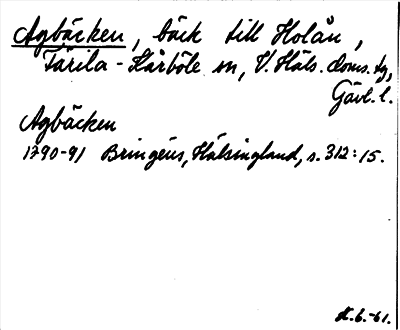 Agbäcken, bäck till Holån,
Färila-Kårböle sn, V. Häls. doms. tg,
Gävl. l.
Agbäcken
1790-91 Bringéus, Hälsingland, s. 312:15.
H. 6.-61.